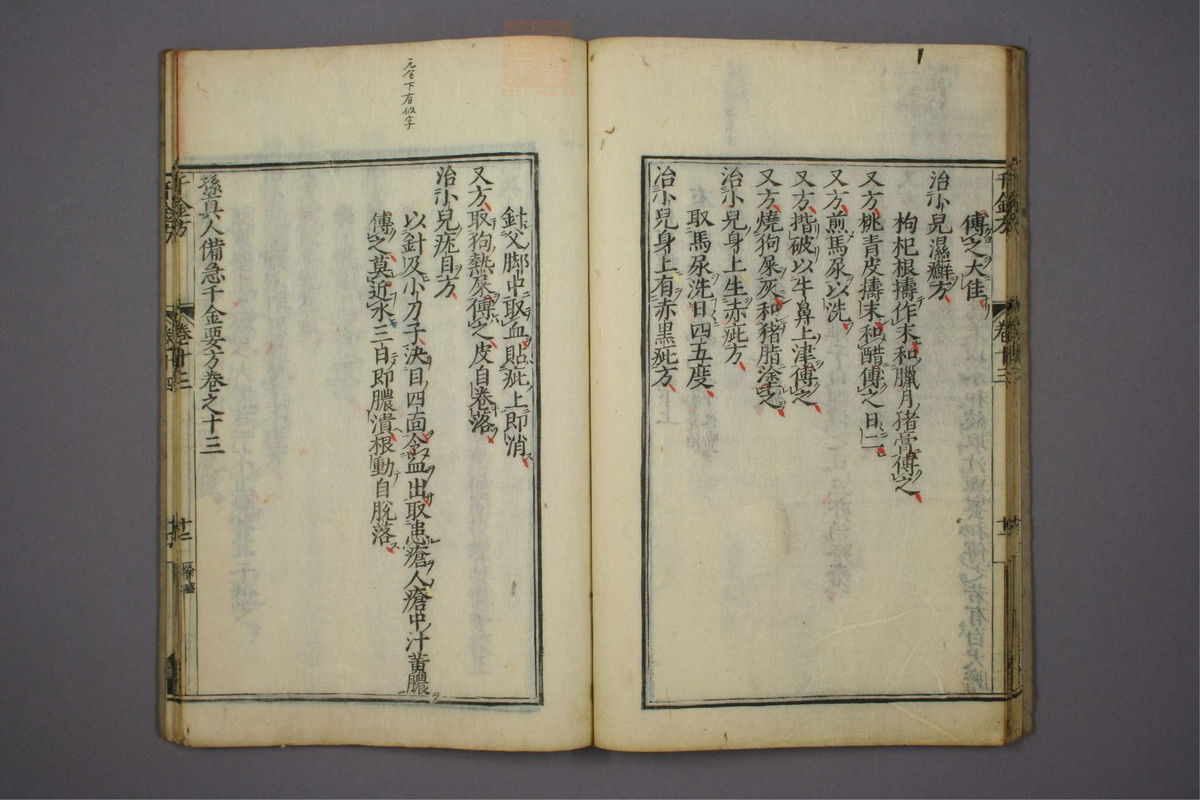 傅之大佳
治小兒濕癬方
枸杞根擣作末和臘月猪膏傅之
又方桃青皮擣末和醋傅之日二
又方煎馬尿以洗
又方揩破以牛鼻上津傅之
又方燒狗屎灰和猪脂塗之
治小兒身上生赤疵方
取馬尿洗日四五度
治小兒身上有赤黑疵方
千金方
卷十三
針父脚中取血貼疵上即消
又方取狗熱尿傅之皮自卷落
治小兒疣目方
以針及小刀子決目四面令血出取患瘡人瘡中汁黄膿
傅之莫近水三日即膿潰根動自脫落
孫真人備急千金要方卷之十三
千金方
卷十三
十二